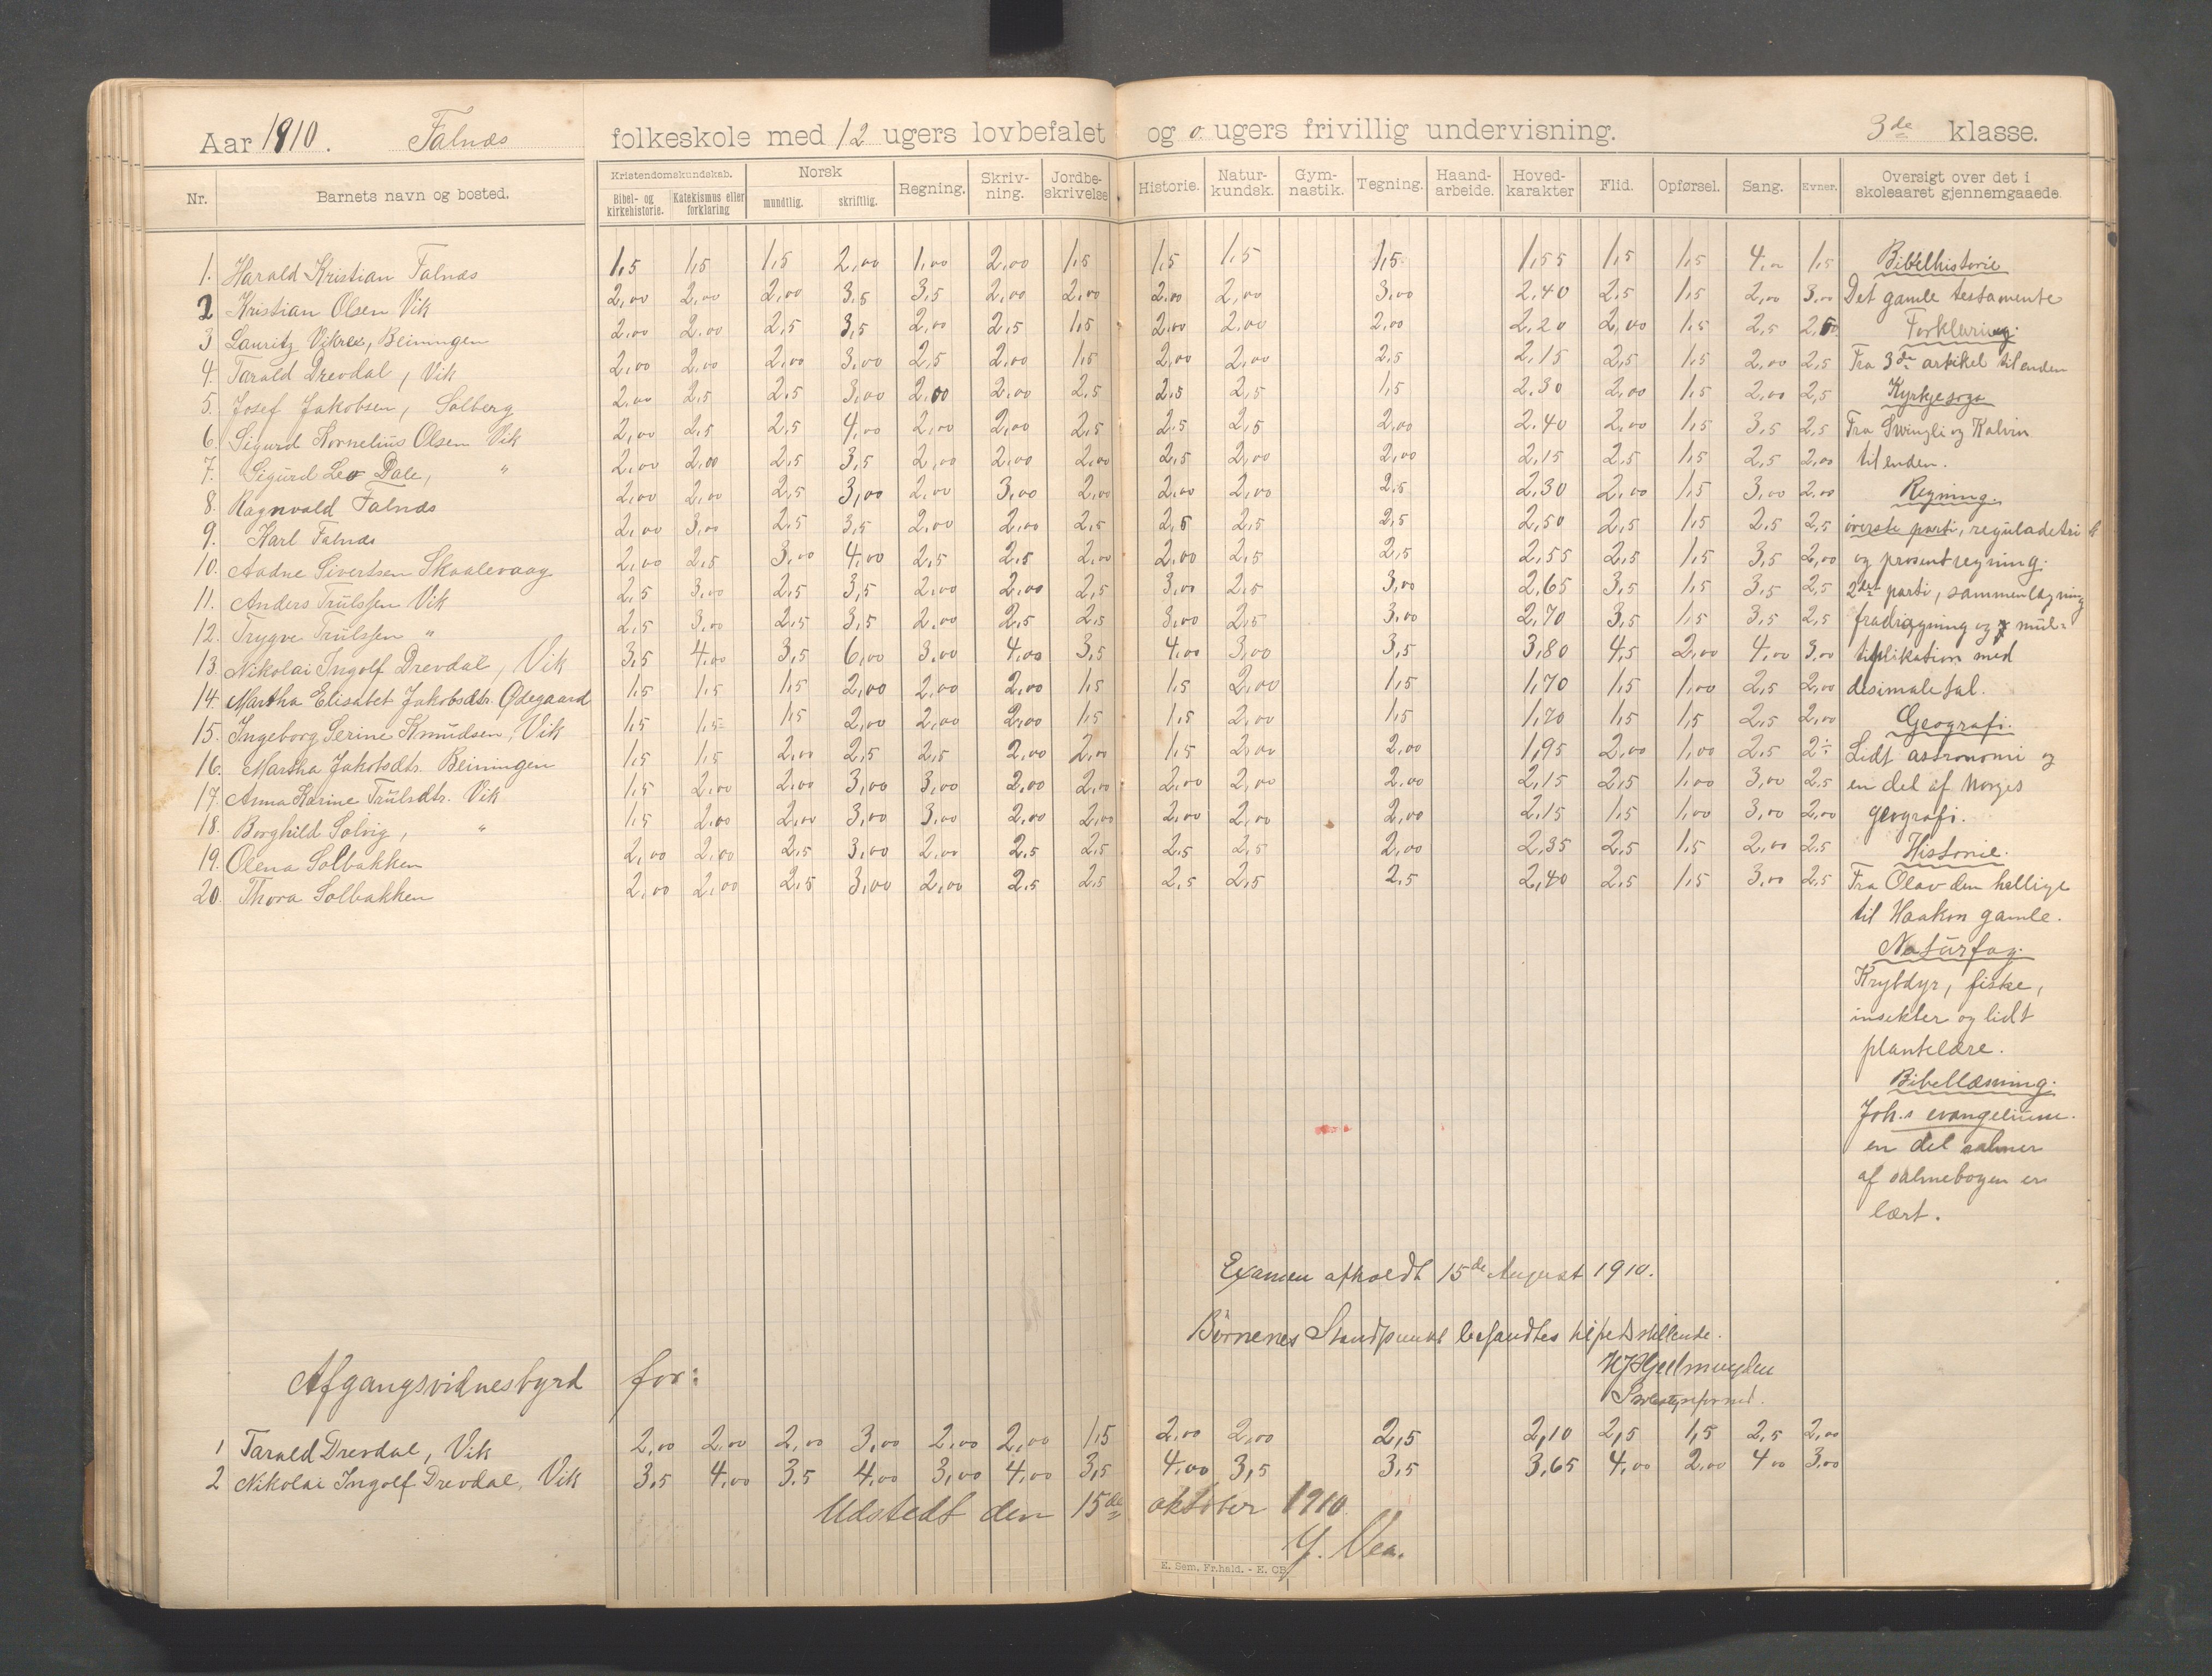 Aar 1910. Falnæs folkeskole med 12 ugers lovbefalet og 0 ugers frivillig undervisning. 3de klasse.
Nr. Barnets navn og bosted. Kristendomskundskab. Bibel- og kirkehistorie. Katekismus eller forklaring Norsk mundtlig. skriftlig. Regning. Skriv-ning. Jordbe-skrivelse Historie. Natur-kundsk. Gym-nastik. Tegning. Haand-arbeide. Hoved-karakter Flid. Opførsel. Sang. Evner. Oversigt over det i skoleaaret gjennemgaaede.
1. Harald Kristian Falnæs 1,5 1,5 1,5 2,00 1,00 2,00 1,5 1,5 1,5 1,5 1,55 1,5 1,5 4,00 1,5 Bibelhistorie
2 Kristian Olsen Vik 2,00 2,00 2,00 3,5 3,5 2,00 2,00 2,00 2,00 3,00 2,40 2,5 1,5 2,00 3,00 Det gamle testamente
3 Lauritz Vikre, Beiningen 2,00 2,00 2,5 3,5 2,00 2,5 1,5 2,00 2,00 2,00 2,20 2,00 1,5 2,5 2,50 Forklaring.
4. Tarald Drevdal, Vik 2,00 2,00 2,00 3,00 2,5 2,00 1,5 2,00 2,00 2,5 2,15 2,5 1,5 2,00 2,5 Fra 3de artikel til enden
5. Josef Jakobsen, Solberg 2,00 2,5 2,5 3,00 2,00 2,00 2,5 2,5 2,5 1,5 2,30 2,00 1,5 2,00 2,5 Kyrkjesoga
6. Sigurd Kornelius Olsen Vik 2,00 2,5 2,5 4,00 2,00 2,00 2,5 2,5 2,5 2,00 2,40 2,00 1,5 3,5 2,5 Fra Swingli og Kalvin
7. Sigurd Leo Dale, " 2,00 2,00 2,5 3,5 2,00 2,00 2,00 2,5 2,00 2,00 2,15 2,5 1,5 2,5 2,00 til enden.
8. Ragnvald Falnæs 2,00 2,00 2,5 3,00 2,00 3,00 2,00 2,00 2,00 2,5 2,30 2,00 1,5 3,00 2,00 Regning.
9. Karl Falnæs 2,00 3,00 2,5 3,5 2,00 2,00 2,5 2,5 2,5 2,5 2,50 2,5 1,5 2,5 2,5 øverste parti, reguladetri
10. Aadne Sivertsen Skaalevaag 2,00 2,5 3,00 4,00 2,5 2,5 2,00 2,00 2,5 2,5 2,55 2,5 1,5 3,5 2,00 og prosentregning.
11. Anders Trulssen Vik 2,5 3,00 2,5 3,5 2,00 2,00 2,5 3,00 2,5 3,00 2,65 3,5 1,5 3,5 2,5 2det parti, sammenlægning
12. Trygve Trulssen " 2,5 3,00 2,5 3,5 2,00 2,5 2,5 3,00 2,5 3,00 2,70 3,5 1,5 3,5 2,5 fradragning og mul-
13. Nikolai Ingolf Drevdal, Vik 3,5 4,00 3,5 6,00 3,00 4,00 3,5 4,00 3,00 3,5 3,80 4,5 2,00 4,00 3,00 tiplikation med
14. Martha Elisabet Jakobsdtr. Ødegaard 1,5 1,5 1,5 2,00 2,00 2,00 1,5 1,5 2,00 1,5 1,70 1,5 1,00 2,5 2,00 desimaletal.
15. Ingeborg Serine Knudsen, Vik 1,5 1,5 1,5 2,00 2,00 2,00 1,5 1,5 2,00 1,5 1,70 1,5 1,5 2,5 2,00 Geografi.
16. Martha Jakobsdtr. Beiningen 1,5 1,5 2,00 2,5 2,5 2,00 2,00 1,5 2,00 2,00 1,95 2,00 1,00 2,5 2÷ Lidt astronomi og
17. Anna Karine Trulsdtr. Vik 1,5 2,00 2,00 3,00 3,00 2,00 2,00 2,00 2,00 2,00 2,15 2,5 1,00 3,00 2,5 en del af Norges
18. Borghild Solvig, " 1,5 2,00 2,00 3,00 3,00 2,00 2,00 2,00 2,00 2,00 2,15 1,5 1,00 3,00 2,00 geografi.
19. Olena Solbakken 2,00 2,00 2,5 3,00 2,00 2,5 2,5 2,5 2,5 2,00 2,35 2,5 1,5 2,00 2,5 Historie.
20. Thora Solbakken 2,00 2,00 2,5 3,00 2,00 2,5 2,5 2,5 2,5 2,5 2,40 2,5 1,5 3,00 2,5 Fra Olav den hellige
til Haakon gamle.
Naturfag.
Krybdyr, fiske,
insekter og lidt
plantelære.
Bibellæsning.
Joh.s evangelium.
en del salmer
af salmebogen er
lært.
Examen afholdt 15de August 1910.
Børnenes Standpunkt befandtes tilfredsstillende.
HJ Geelmuyden
Afgangsvidnesbyrd for:
1 Tarald Drevdal, Vik 2,00 2,00 2,00 3,00 2,00 2,00 1,5 2,00 2,00 2,5 2,10 2,5 1,5 2,5 2,00
2 Nikolai Ingolf Drevdal, Vik 3,5 4,00 3,5 4,00 3,00 4,00 3,5 4,00 3,5 3,5 3,65 4,00 2,00 4,00 3,00
Udstedt den 15de oktober 1910
Y. Vea.
E. Sem, Fr.hald. - E. OB